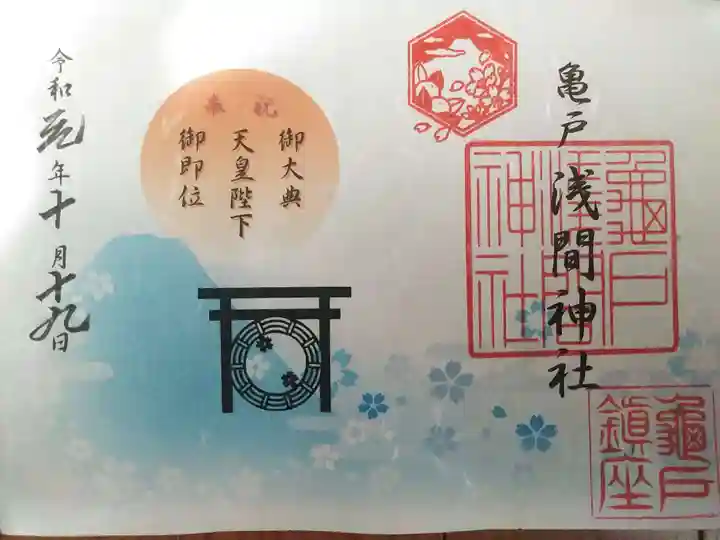 亀戸浅間神社
龜戸
浅間
神社
龜戸
鎮座
奉祝
御大典
天皇陛下
御即位
令和元年十月十九日